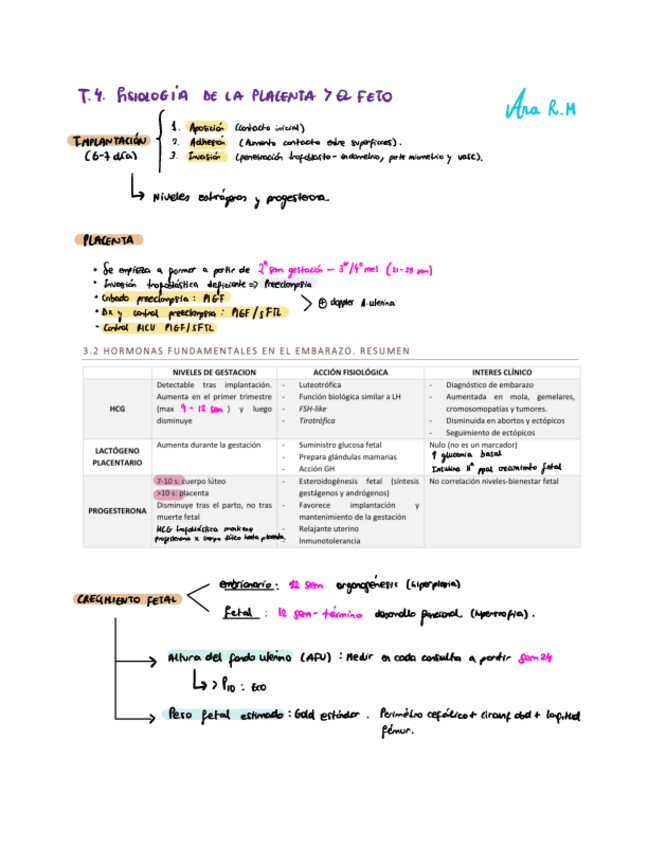 T.4. FISIOLOGÍA DE LA PLACENTA Y EL FETO
Ana R.M
IMPLANTACIÓN
(6-7 día)
1. Aposición (contacto inicial)
2. Adhesión (Aumento contacto entre superficies).
3. Invasión (penetración trofoblasto - endometrio, parte miometrio y vasc).
Niveles estrógenos y progesterona
PLACENTA
• Se empieza a formar a partir de 2ª sem gestación - 3er/4º mes (21-28 sem)
• Invasión trofoblástica deficiente => Preeclampsia
• Cribado preeclampsia: PlGF
• Dx y control preeclampsia: PlGF/sFTL
- Control RICU PlGF/sFTL
⊕ doppler A. uterina
3.2 HORMONAS FUNDAMENTALES EN EL EMBARAZO. RESUMEN
NIVELES DE GESTACION ACCIÓN FISIOLÓGICA INTERES CLÍNICO
HCG
Detectable tras implantación.
Aumenta en el primer trimestre
(max 9 - 12 sem) y luego
disminuye
- Luteotrófica
- Función biológica similar a LH
- FSH-like
- Tirotrófica
- Diagnóstico de embarazo
- Aumentada en mola, gemelares,
cromosomopatías y tumores.
- Disminuida en abortos y ectópicos
- Seguimiento de ectópicos
LACTÓGENO
PLACENTARIO
Aumenta durante la gestación
- Suministro glucosa fetal
- Prepara glándulas mamarias
- Acción GH
Nulo (no es un marcador)
↑ glucemia basal
Insulina Hª ppal crecimiento fetal
PROGESTERONA
7-10 s: cuerpo lúteo
>10 s: placenta
Disminuye tras el parto, no tras
muerte fetal
HCG trofoblástica mantiene
progesterona x cuerpo lúteo hasta placenta.
- Esteroidogénesis fetal (síntesis
gestágenos y andrógenos)
- Favorece implantación y
mantenimiento de la gestación
- Relajante uterino
- Inmunotolerancia
No correlación niveles-bienestar fetal
CRECIMIENTO FETAL
embrionario: 12 sem organogénesis (hiperplasia)
fetal: 12 sem - término desarrollo funcional. (hipertrofia).
Altura del fondo uterino (AFU): Medir en cada consulta a partir sem 24
> P10 : Eco
Peso fetal estimado: Gold estándar. Perímetro cefálico + circunf abd + longitud
fémur.